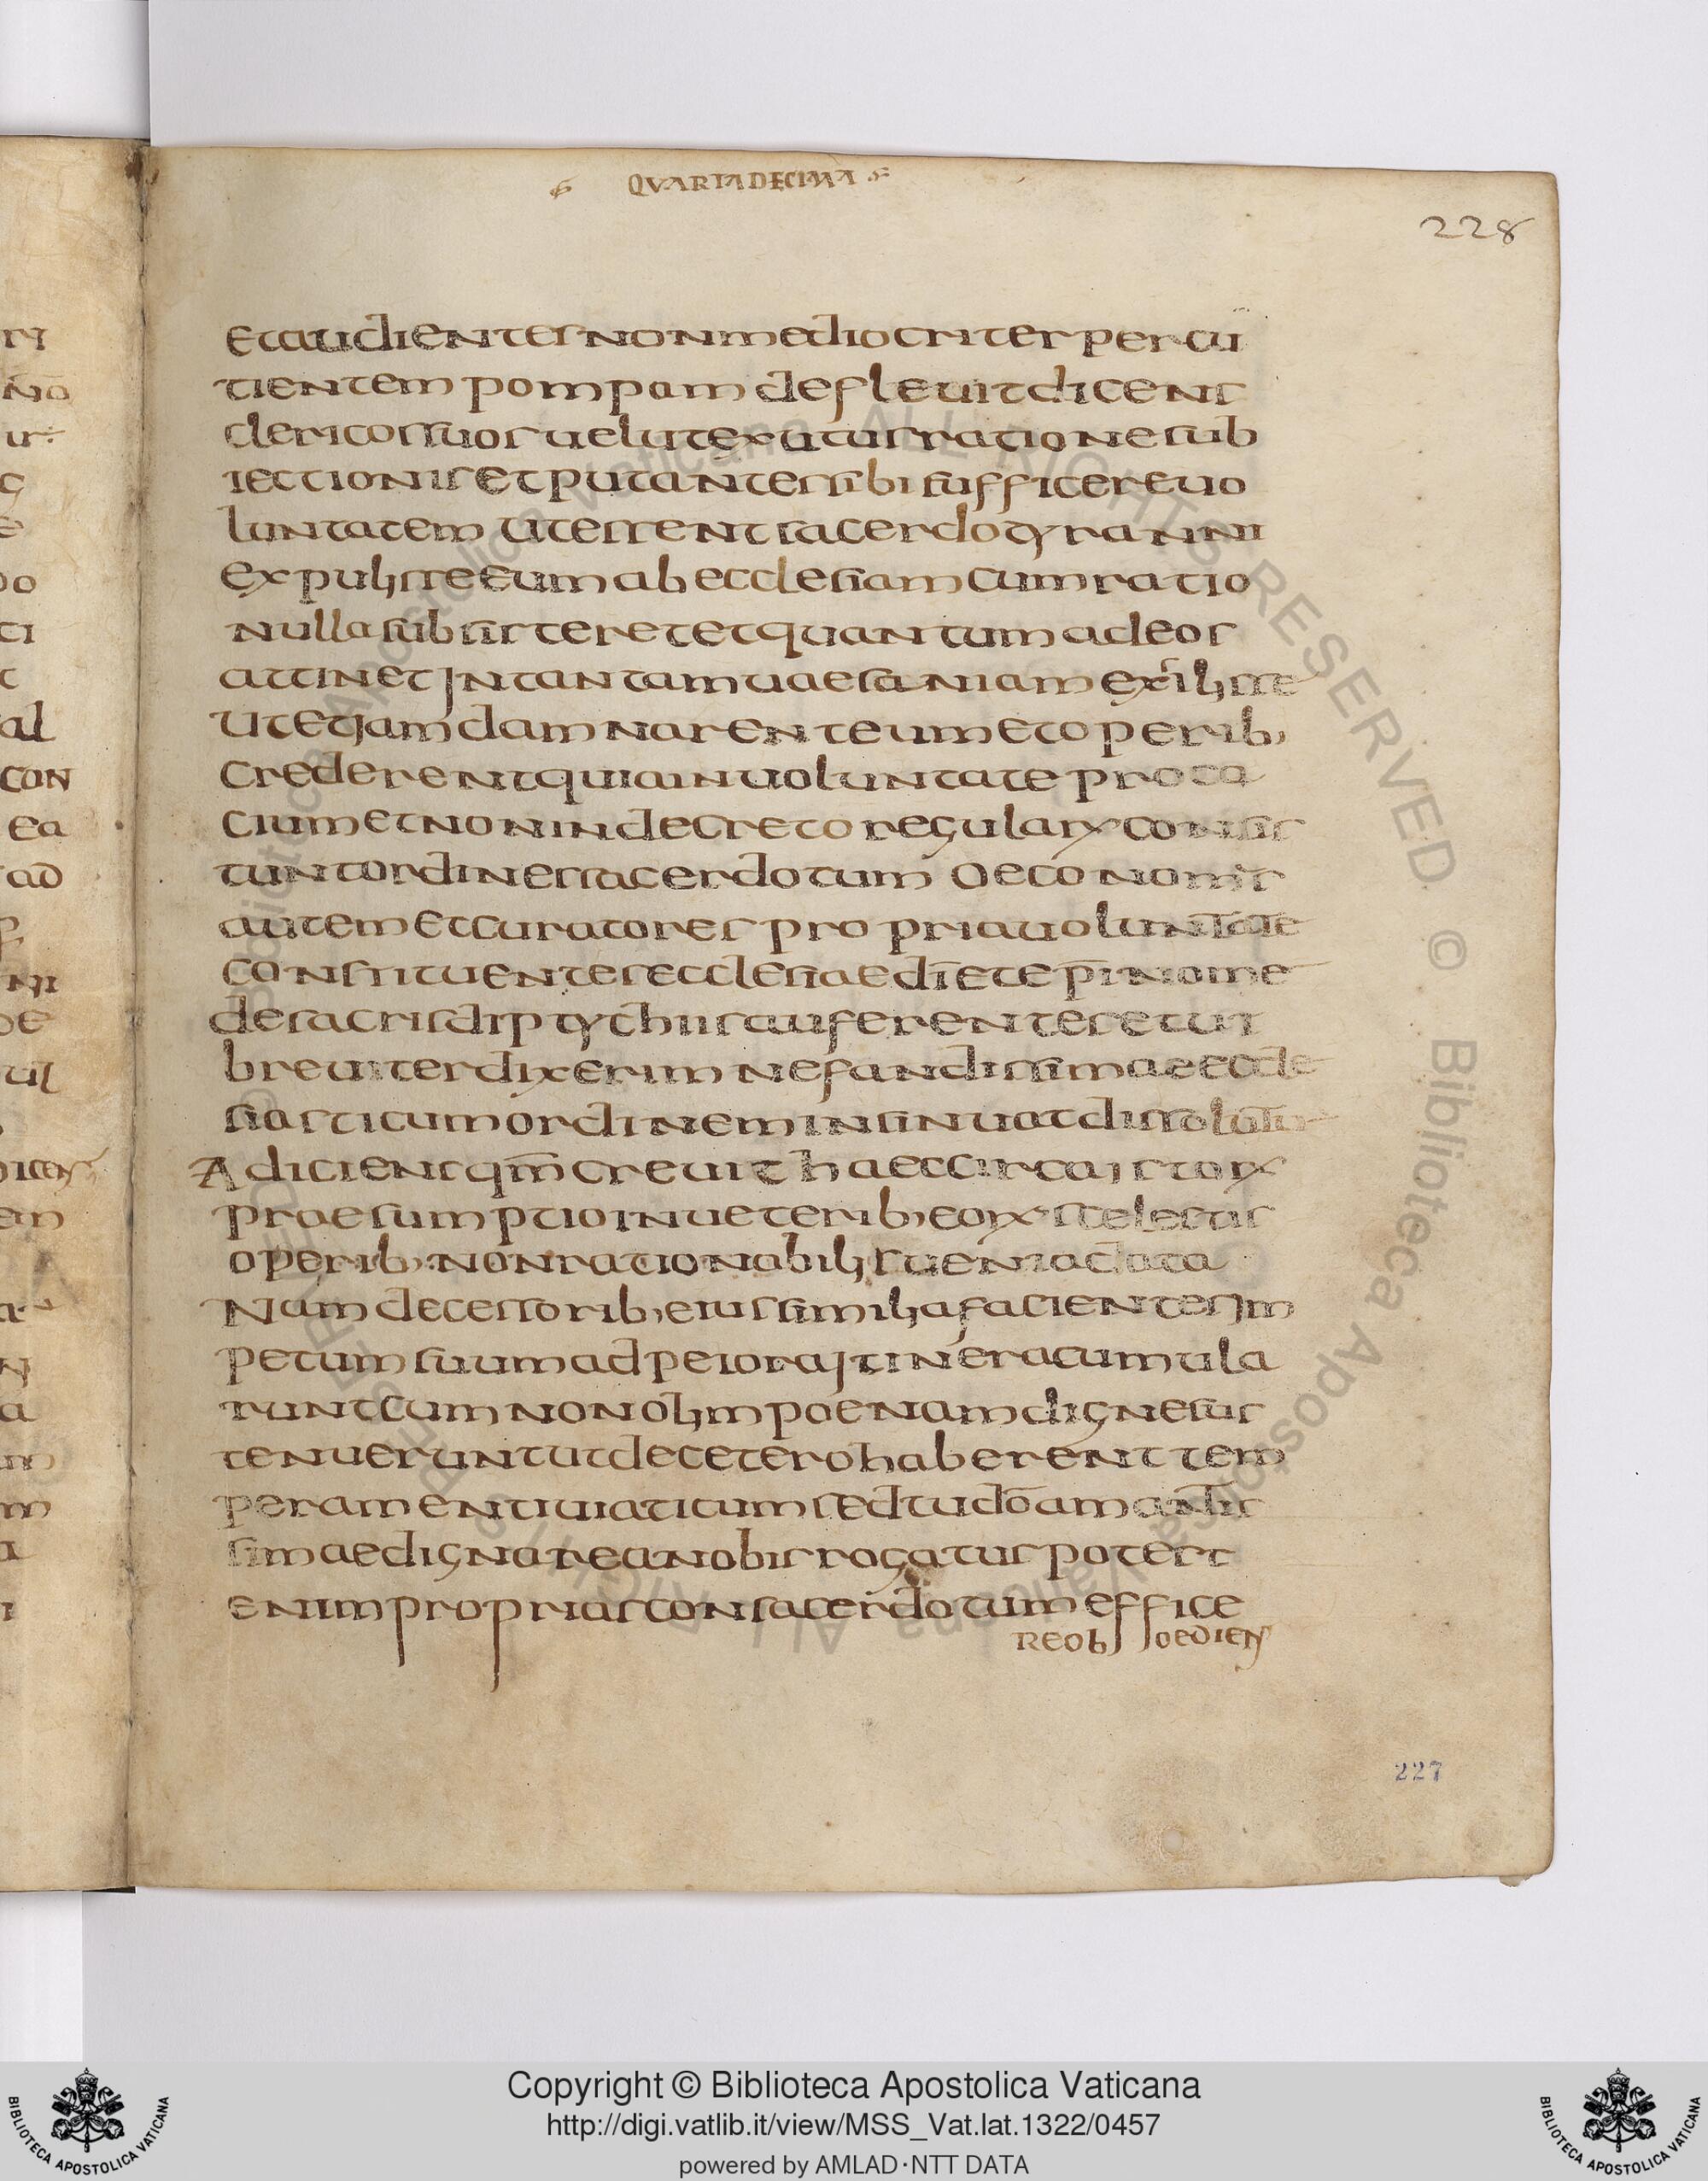 QVARTADECIMA
228
Etaudientesnonmediocriterpercu
tientem pompam defleuitdicens
clericossuosuelutexutusrationesub
iectioniset putantessibisufficereuo
luntatem utessentsacerdotyranni
expulisseeumabecclesiamcumratio
nullasubsisteretetquantumadeos
attinet Intantamuaesaniamexsilisse
utetiamdamnarenteumetoperib,
crederentquiainuoluntate proca
ciumetnonindecretoregularxconsis
tuntordinessacerdotum oeconomis
autemetcuratores propriauoluntate
constituentesecclesiaediētep̄inome
desacrisdiptychiisauferentesetut
breuiterdixerimnefandissimaeeccle
siasticumordineminsinuatdissolutū
Adiciensqm̄creuit haeccircaistorx
praesumptioinueterib,eorxscelestis
operib,nonrationabilisueniadata
Namdecessorib,eiussimiliafacientesIm
petumsuumadpeioraitineracumula
runtcumnonolimpoenamdignesuis
tenueruntutdeceterohaberenttem
peramentiuiaticumsedtudōamantis
simaedignareanobisrogatuspotest
enimpropriasconsacerdotumeffice
REOB OEDIEN
227
ri
nō
al
con
ea
ad
ni
ul
dicen
Copyright © Biblioteca Apostolica Vaticana
http://digi.vatlib.it/view/MSS_Vat.lat.1322/0457
powered by AMLAD·NTT DATA
BIBLIOTECA APOSTOLICA VATICANA
BIBLIOTECA APOSTOLICA VATICANA